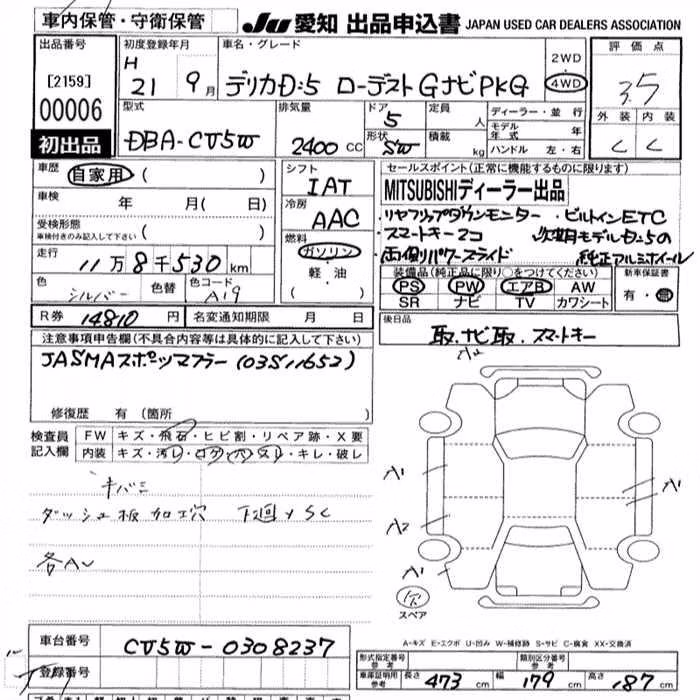 車内保管・守衛保管
JU 愛知 出品申込書 JAPAN USED CAR DEALERS ASSOCIATION
出品番号
[2159]
00006
初出品
初度登録年月
H
21 9月
車名・グレード
デリカD:5 ローデスト GナビPKG
2WD
4WD
評価点
3.5
外装 内装
C C
型式
DBA-CV5W
排気量
2400 CC
ドア
5
形状
SW
定員
人
積載
kg
ディーラー・並行
モデル年式 年
ハンドル 左・右
車歴
自家用 ( )
車検
年 月( 日)
受検形態
車検付きのみ記入して下さい ( )
走行
11万8千530km
色
シルバー
色替
色コード
A19
シフト
IAT
冷房
AAC
燃料
ガソリン
軽・油
( )
セールスポイント(正常に機能するものに限ります)
MITSUBISHIディーラー出品
・リヤフリップダウンモニター ・ビルトインETC
・スマートキー2コ 次期モデルD:5の
・両側パワースライド 純正アルミホイール
装備品(純正品に限り○をつけてください)
PS PW エアB AW
SR ナビ TV カワシート
新車保証書
有・無
R券 14810円
名変通知期限 月 日
後日品
取、ナビ取、スマートキー
注意事項申告欄(不具合内容等は具体的に記入して下さい)
JASMAスポーツマフラー(03S11652)
修復歴 有(箇所 )
検査員記入欄
FW キズ・飛石・ヒビ割・リペア跡・X要
内装 キズ・汚レ・コゲ・穴・スレ・キレ・破レ
キバミ
ダッシュ板加工穴 下廻りSC
A1
A2
A1
A1
スペア
A-キズ E-エクボ U-凹み W-補修跡 S-サビ C-腐食 XX-交換済
車台番号
CV5W-0308237
登録番号
形式指定番号
参考
類別区分番号
参考
車庫証明用
参考
長さ 473cm 幅 179cm 高さ 187cm